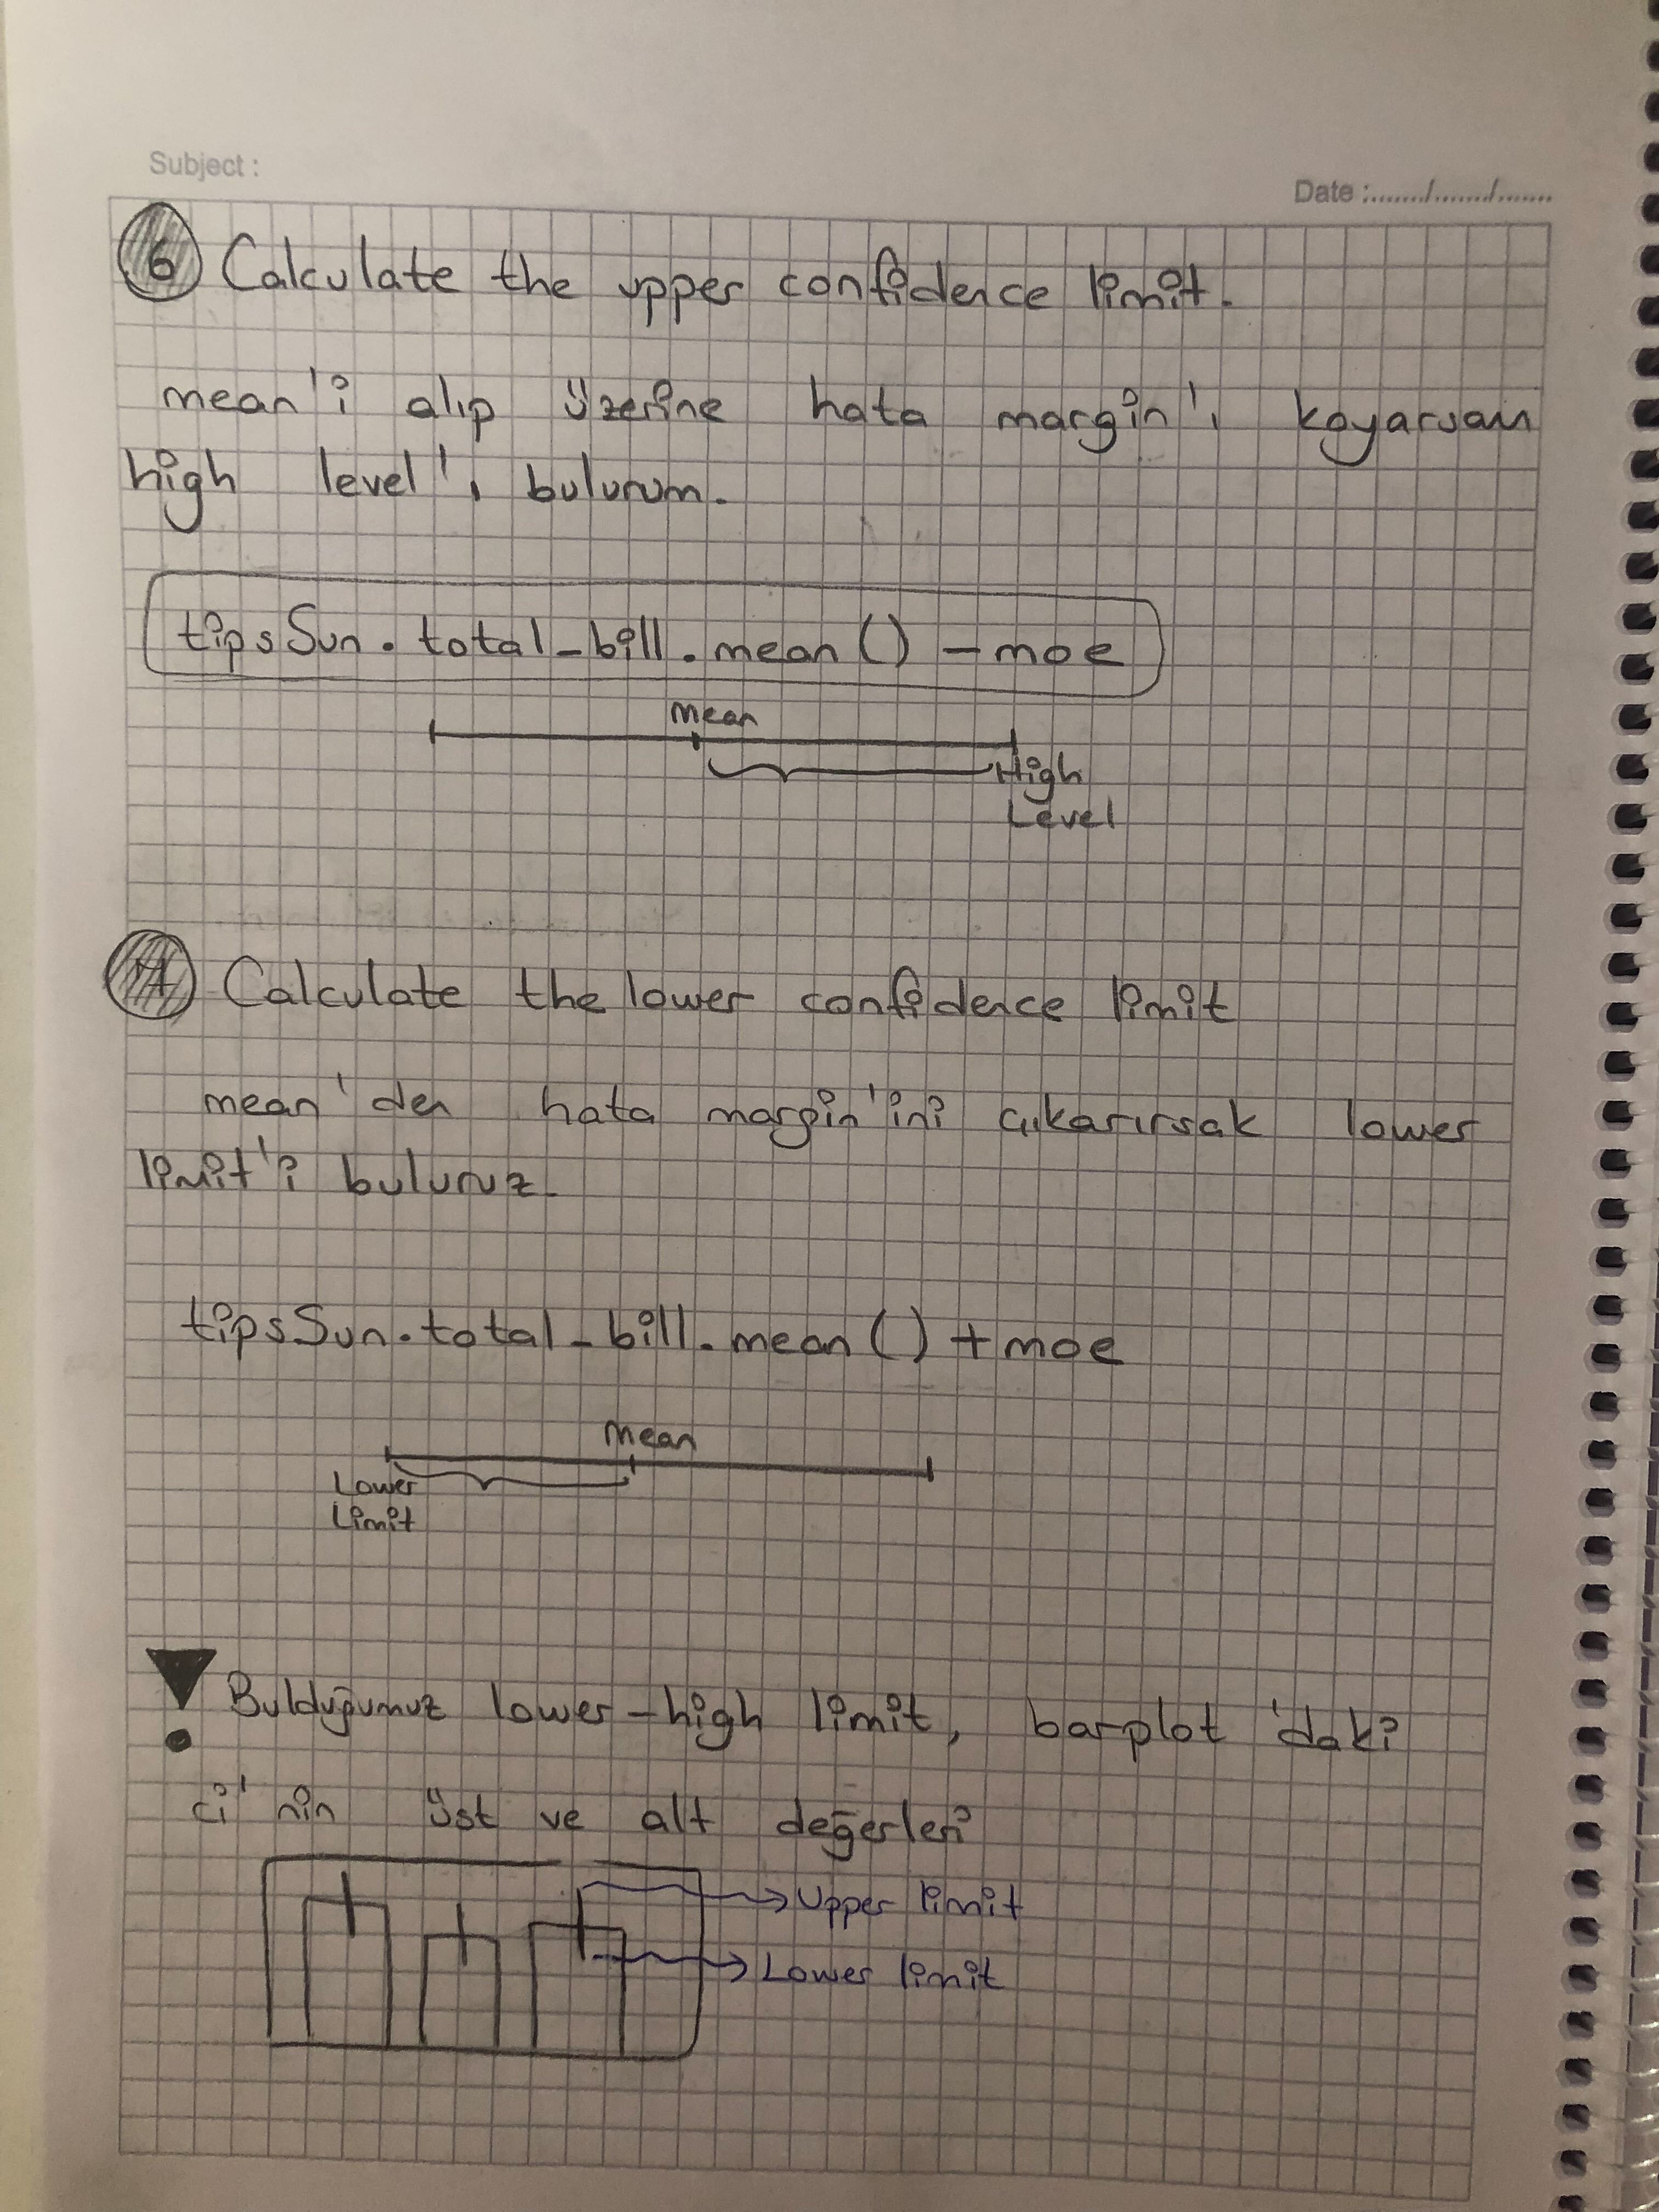 Subject :
Date :......../......../........
6 Calculate the upper confidence limit.
mean'i alıp üzerine hata margin'ı koyarsam
high level'ı bulurum.
tipsSun.total_bill.mean() - moe
mean
High
Level
Calculate the lower confidence limit
mean'den hata margin'ini çıkarırsak lower
limit'i buluruz.
tipsSun.total_bill.mean() + moe
mean
Lower
Limit
Bulduğumuz lower-high limit, barplot'daki
ci'nin üst ve alt değerleri
Upper limit
Lower limit